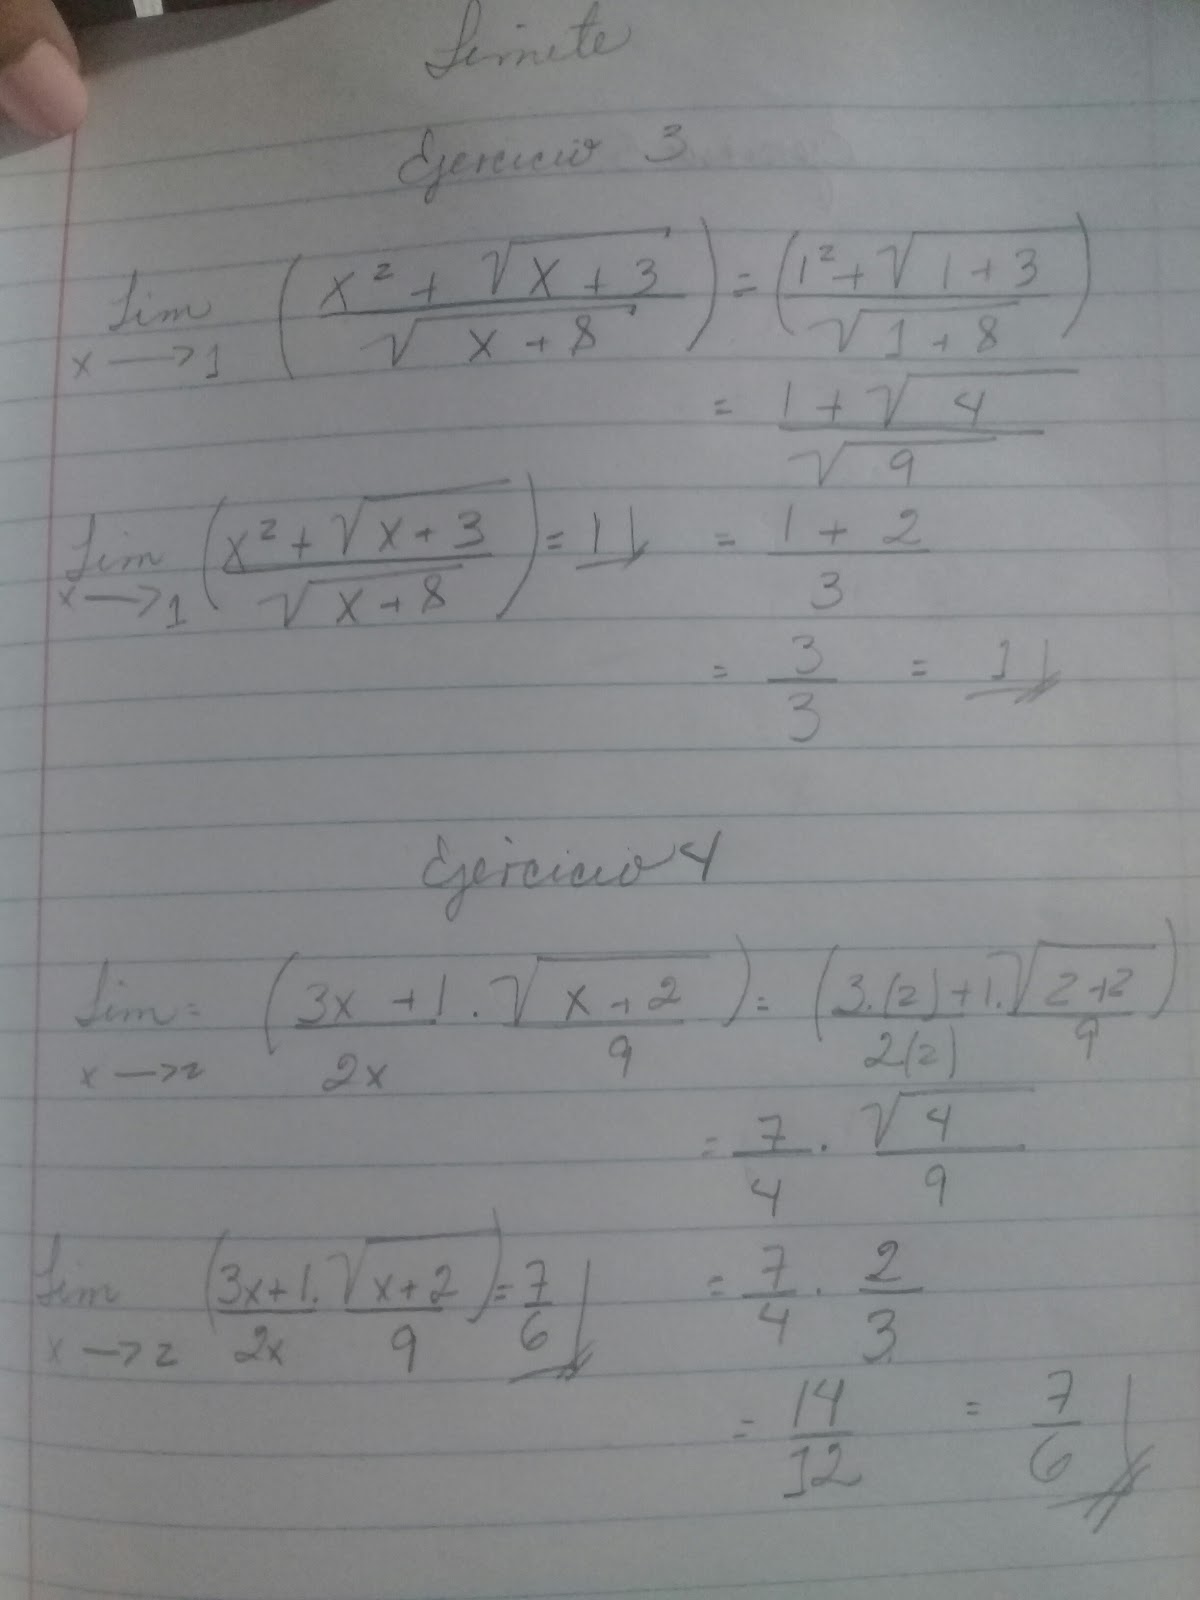 Limite
Ejercicio 3
Lim x→1 (x² + √(x + 3) / √(x + 8)) = (1² + √(1 + 3) / √(1 + 8))
= 1 + √4 / √9
Lim x→1 (x² + √(x + 3) / √(x + 8)) = 1 = 1 + 2 / 3
= 3/3 = 1
Ejercicio 4
Lim = x→2 (3x + 1 / 2x . √(x + 2) / 9) = (3.(2) + 1 / 2(2) . √(2 + 2) / 9)
= 7/4 . √4 / 9
Lim x→2 (3x + 1 / 2x . √(x + 2) / 9) = 7/6 = 7/4 . 2/3
= 14/12 = 7/6